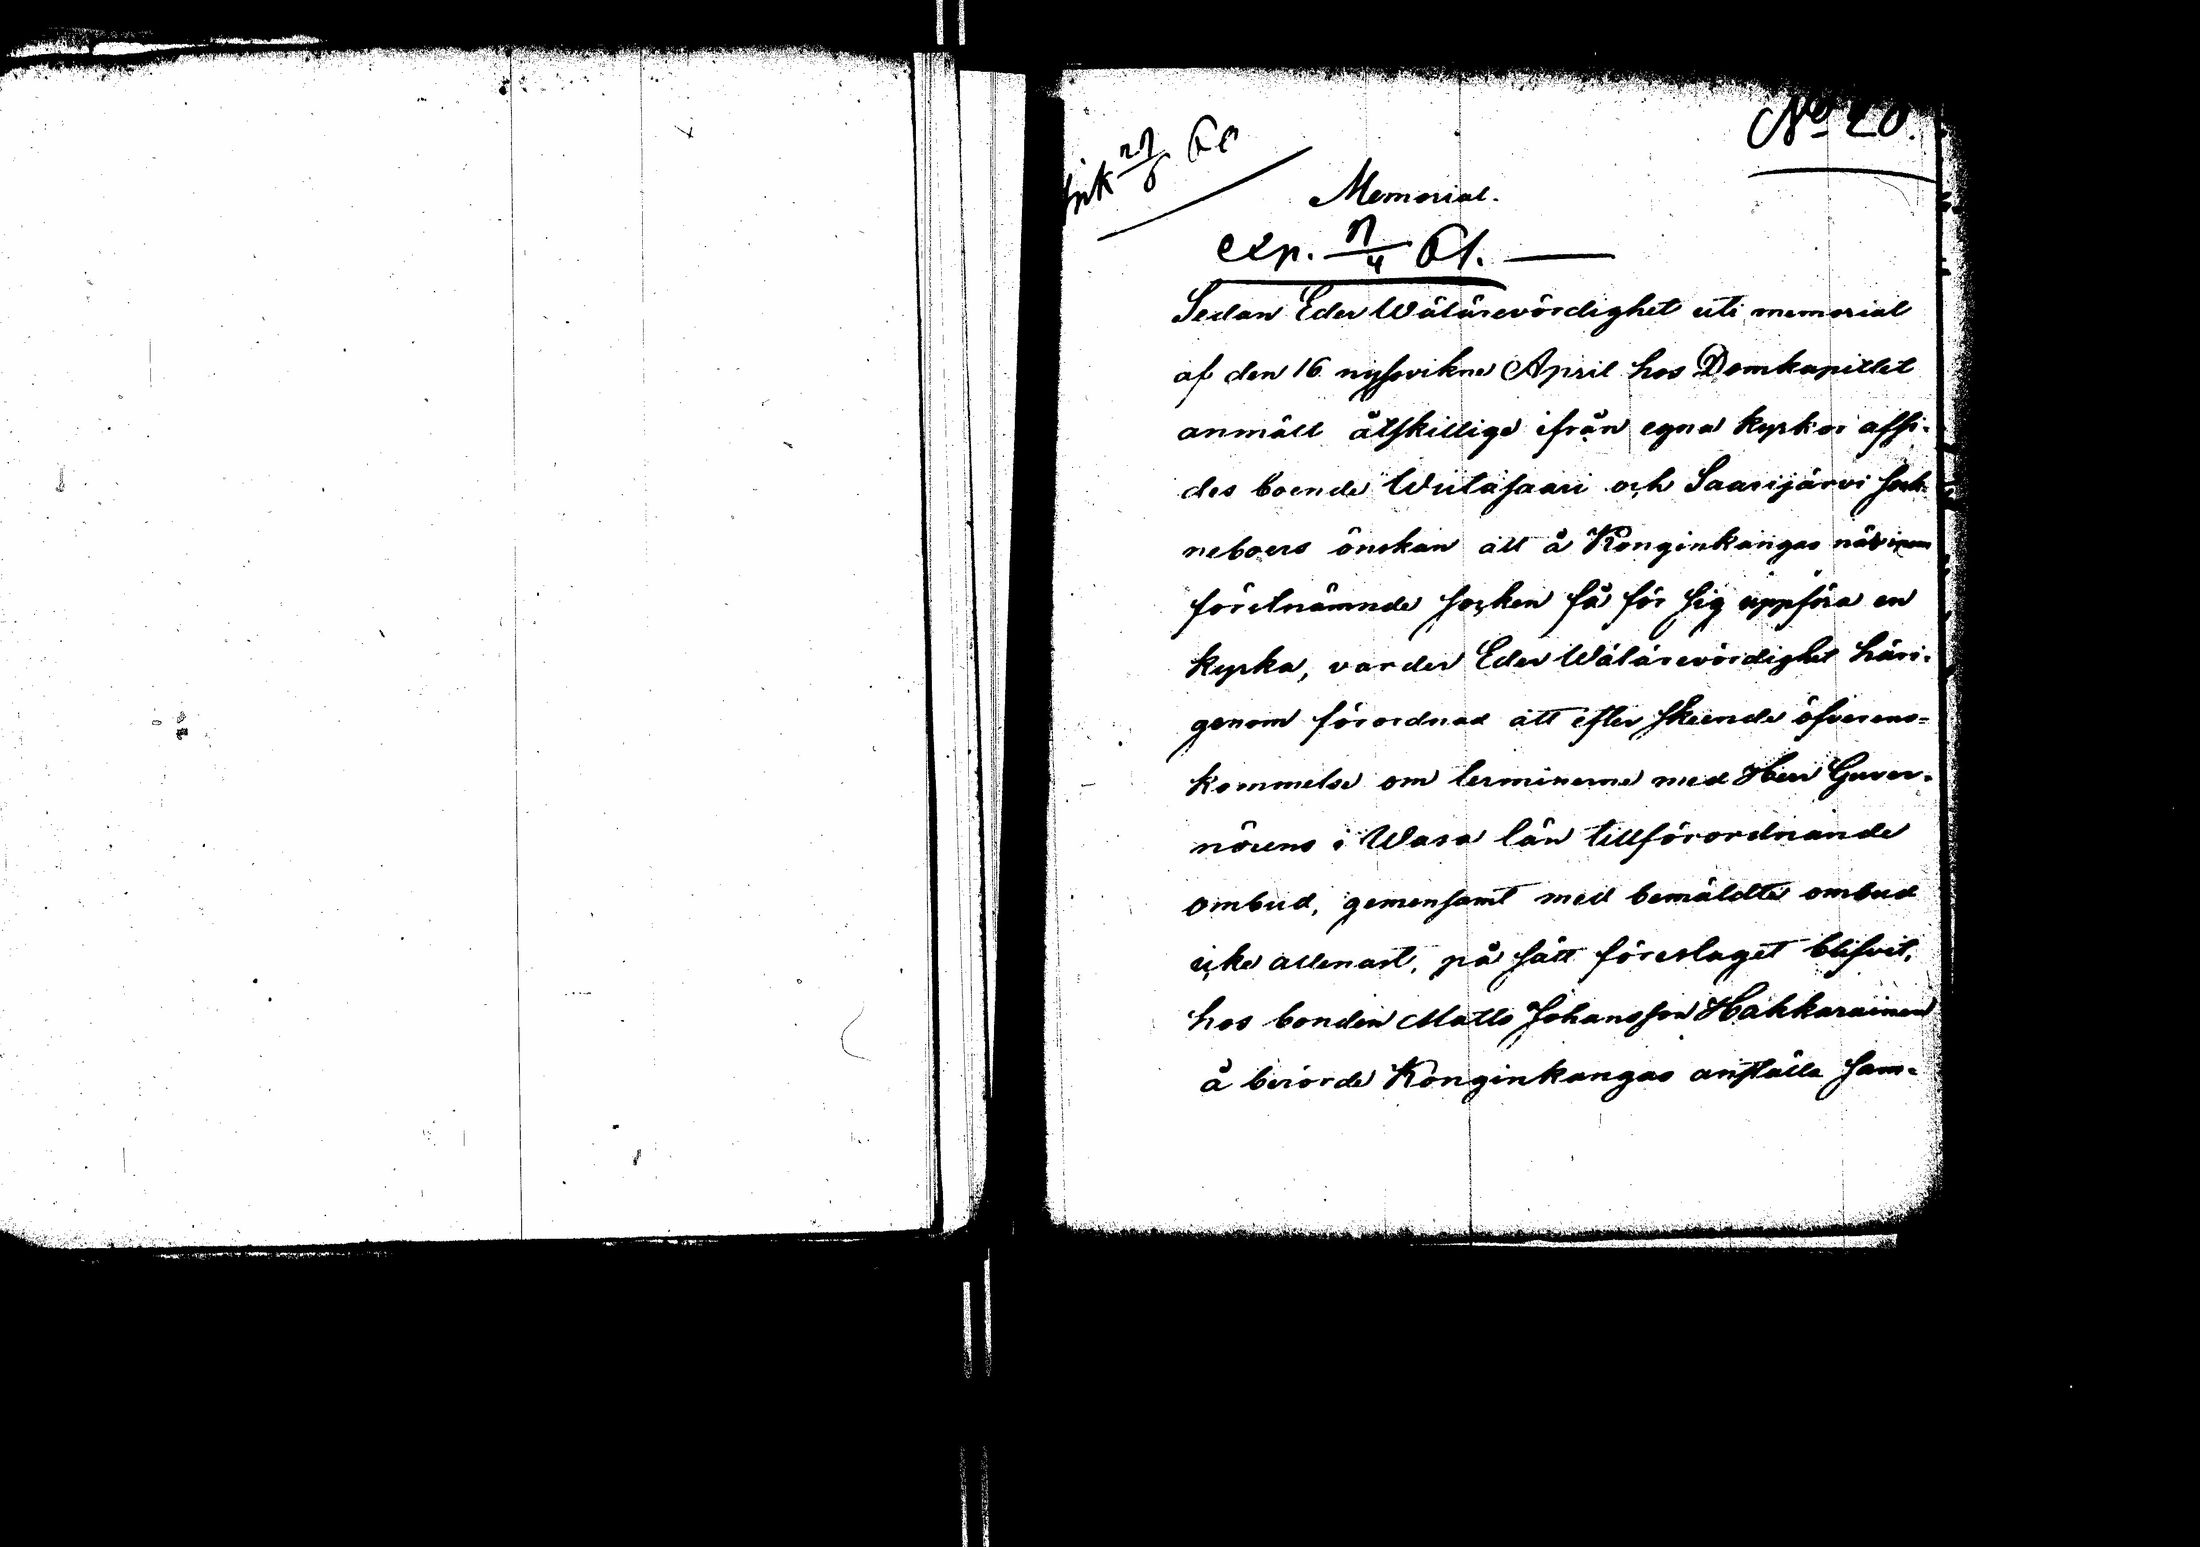 No 20.
ink 27/6 60
Memorial.
exp. 17/4 61.
Sedan Eder Wälärevördighet uti memorial
af den 16 nyssvikne April hos Domkapitlet
anmält åtskillige ifrån egna kyrkor afsi-
des boende Wiitasaari och Saarijärvi sock-
neboers önskan att å Konginkangas näs inom
förstnämnde socken få för sig uppföra en
kyrka, varder Eder Wälärevördighet häri-
genom förordnad att efter skeende öfverens-
kommelse om terminerne med Herr Guver-
nörens i Wasa län tillförordnande
ombud, gemensamt med bemäldte ombud
icke allenast, på sätt föreslaget blifvit,
hos bonden Matts Johansson Hakkarainen
å berörde Konginkangas anställa sam-